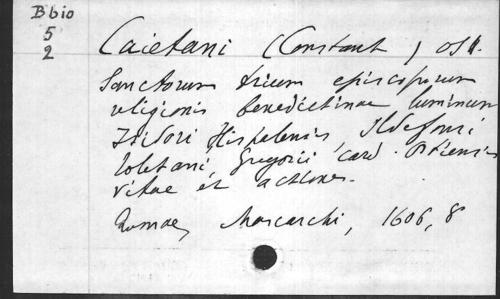 B bio
5
2
Caietani (Constant) OSB.
Sanctorum trium episcoporum
religionis benedictinae luminum
Isidori Hispalensis Ildefonsi
Toletani, Gregorii card. Ostiensis
vitae et actiones.
Romae, Mascardi, 1606, 8